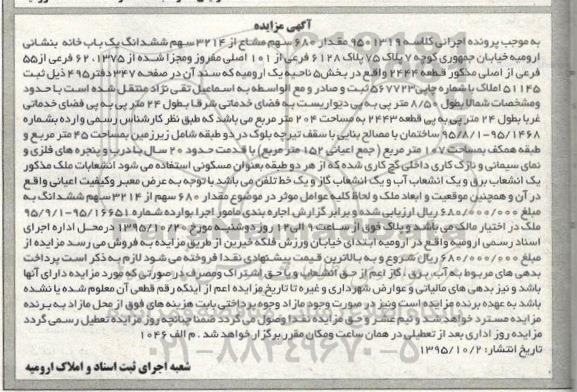 آگهی مزایده
به موجب پرونده اجرائی کلاسه ۹۵۰۱۳۱۹ مقدار ۶۸۰ سهم مشاع از ۳۲۱۴ سهم ششدانگ یک باب خانه بنشانی
ارومیه خیابان جهری ۷ پلاک ۷۵ پلاک ۶۱۲۸ فرعی از ۱۰۱ اصلی مفروز و مجزا شده از ۱۳۷۵، ۶۲ فرعی از ۵۵
فرعی از اصلی مذکور قطعه ۲۴۴۴ واقع در بخش ۵ ناحیه یک ارومیه که سند آن در صفحه ۳۴۷ دفتر ۴۹۵ ذیل ثبت
۵۱۱۴۵ املاک با شماره چاپی ۵۶۷۷۲۳ ثبت و صادر و مع الواسطه به اسماعیل تقی نژاد منتقل شده است با حدود
ومشخصات شمالا بطول ۸/۵۰ متر پی به پی دیواریست به فضای خدماتی شرقا بطول ۲۴ متر پی به پی فضای خدماتی
غربا بطول ۲۴ متر پی به پی قطعه ۲۴۴۳ به مساحت ۲۰۴ متر مربع می باشد که طبق نظر کارشناس رسمی وارده بشماره
۹۵/۱۴۶۸-۹۵/۸/۱ ساختمان با مصالح بنایی با سقف تیرچه بلوک در دو طبقه شامل زیرزمین بمساحت ۴۵ متر مربع و
طبقه همکف بمساحت ۱۰۷ متر مربع (جمع اعیانی ۱۵۲ متر مربع) با قدمت حدود ۲۰ سال با درب و پنجره های فلزی و
نمای سیمانی و نازک کاری داخلی گچ کاری شده که از هر دو طبقه بعنوان مسکونی استفاده می شود انشعابات ملک مذکور
یک انشعاب برق و یک انشعاب آب و یک انشعاب گاز و یک خط تلفن می باشد با توجه به عرض معبر وکیفیت اعیانی واقع
در آن و همچنین موقعیت و ابعاد ملک و لحاظ کلیه عوامل موثر در موضوع مقدار ۶۸۰ سهم از ۳۲۱۴ سهم ششدانگ به
مبلغ ۶۸۰/۰۰۰/۰۰۰ ریال ارزیابی شده و برابر گزارش اجاره بندی مامور اجرا بوارده شماره ۹۵/۱۶۶۵۱-۹۵/۹/۱
ملک در اختیار مالک می باشد و پلاک فوق از ساعت ۹ الی ۱۲ روز دوشنبه مورخ ۱۳۹۵/۱۰/۲۰ در محل اداره اجرای
اسناد رسمی ارومیه واقع در ارومیه ابتدای خیابان ورزش فلکه خیرین از طریق مزایده به فروش می رسد مزایده از
مبلغ ۶۸۰/۰۰۰/۰۰۰ ریال شروع و به بالاترین قیمت پیشنهادی نقدا فروخته می شود لازم به ذکر است پرداخت
بدهی های مربوط به آب، برق، گاز اعم از حق انشعاب و یا حق اشتراک ومصرف در صورتی که مورد مزایده دارای آنها
باشد و نیز بدهی های مالیاتی و عوارض شهرداری و غیره تا تاریخ مزایده اعم از اینکه رقم قطعی آن معلوم شده یا نشده
باشد به عهده برنده مزایده است ونیز در صورت وجود مازاد وجوه پرداختی بابت هزینه های فوق از محل مازاد به برنده
مزایده مسترد خواهد شد و نیم عشر و حق مزایده نقدا وصول می گردد ضمنا چنانچه روز مزایده تعطیل رسمی گردد
مزایده روز اداری بعد از تعطیلی در همان ساعت ومکان مقرر برگزار خواهد شد. م الف ۱۰۴۶
تاریخ انتشار: ۱۳۹۵/۱۰/۲
شعبه اجرای ثبت اسناد و املاک ارومیه
۰۲۱-۸۸۳۴۹۶۷۰-۵